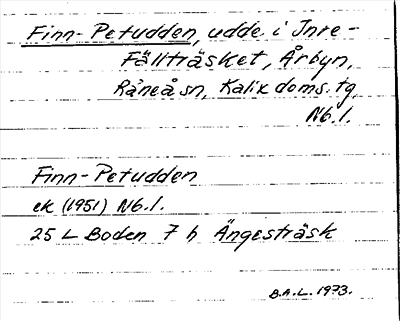 Finn-Petudden, udde i Inre-
Fällträsket, Årbyn,
Råneå sn, Kalix doms. tg
Nb. l.
Finn-Petudden
ek (1951) Nb. l.
25 L Boden 7 h Ängesträsk
B.A.L. 1973.